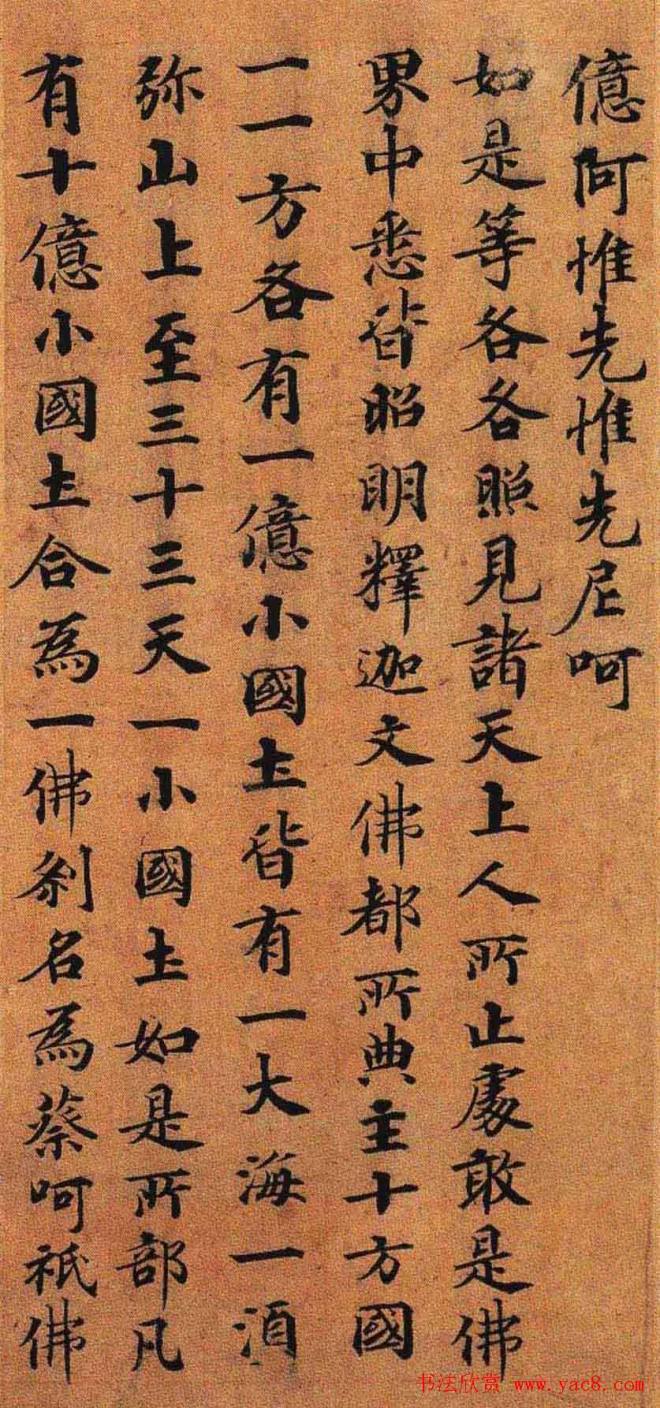 億阿惟先惟先尼呵
如是等各各照見諸天上人所止處敢是佛
界中悉皆昭明釋迦文佛都所典主十方國
一一方各有一億小國土皆有一大海一湏
弥山上至三十三天一小國土如是所部凡
有十億小國土合為一佛刹名為蔡呵祇佛
书法欣赏 www.yac8.com